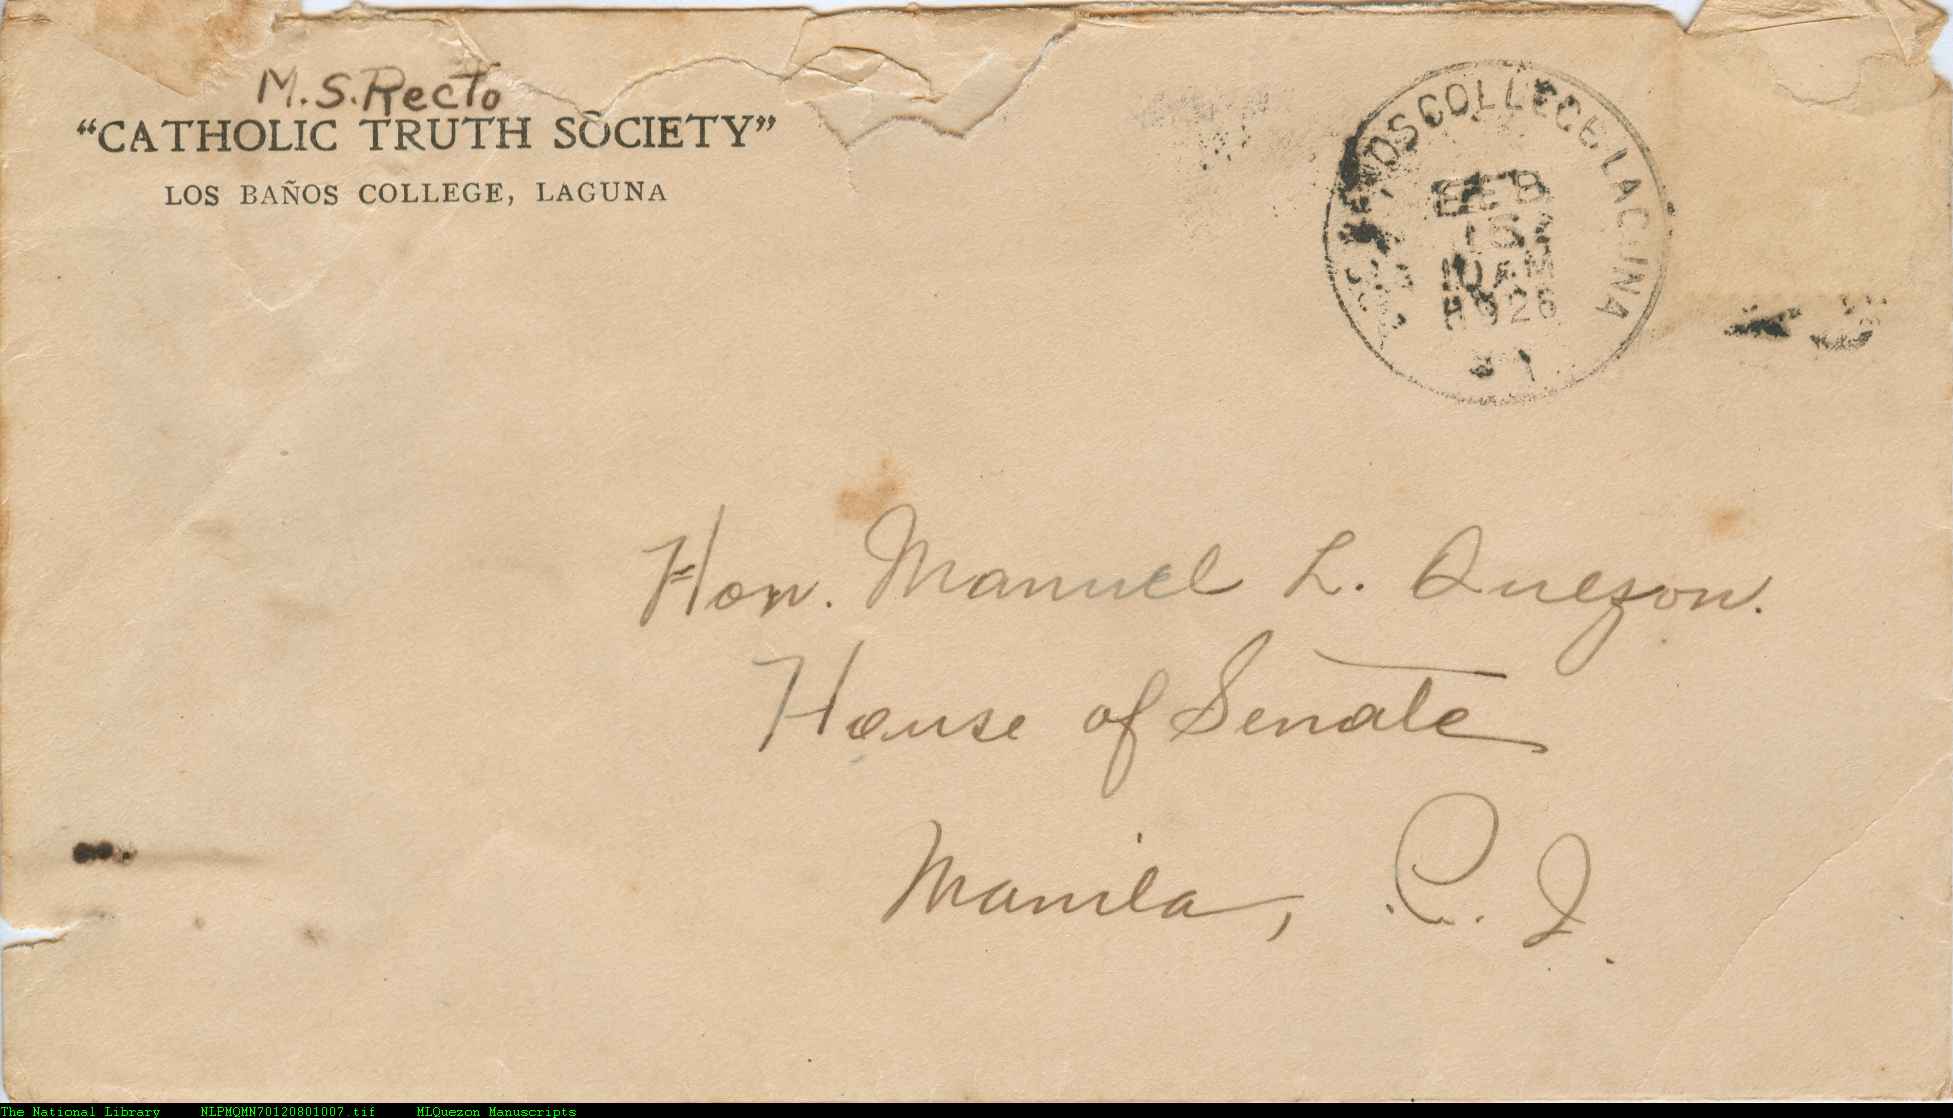 M. S. Recto
“CATHOLIC TRUTH SOCIETY”
LOS BAÑOS COLLEGE, LAGUNA
LOS BAÑOS COLLEGE, LAGUNA
FEB
10 AM
1926
Hon. Manuel L. Quezon.
House of Senate
Manila, P. I.
The National Library NLPMQMN70120801007.tif MLQuezon Manuscripts